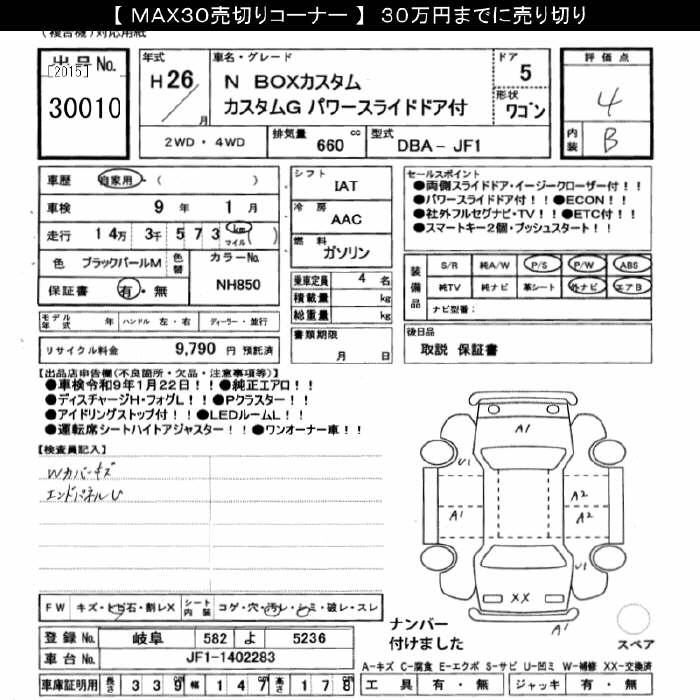 【 MAX30売切りコーナー 】 30万円までに売り切り
(複合機)対応用紙
出品No.
[2015]
30010
年式
H26
月
車名・グレード
N BOXカスタム
カスタムG パワースライドドア付
ドア
5
形状
ワゴン
評価点
4
内装
B
2WD・4WD
排気量
660 cc
型式
DBA- JF1
車歴 自家用・( )
車検 9年 1月
走行 14万 3千 573 km マイル ( )
色 ブラックパールM 色替
カラーNo.
NH850
保証書 有・無
シフト
IAT
冷房
AAC
燃料
ガソリン
乗車定員 4 名
積載量 kg
総重量 kg
セールスポイント
●両側スライドドア・イージークローザー付!!
●パワースライドドア付!!●ECON!!
●社外フルセグナビ・TV!!●ETC付!!
●スマートキー2個・プッシュスタート!!
装備品
S/R 純A/W P/S P/W ABS
純TV 純ナビ 革シート 外ナビ エアB
ナビ型番:
モデル年式 年 ハンドル 左・右 ディーラー・並行
書類期限
月 日
後日品
取説 保証書
リサイクル料金 9,790 円 預託済
【出品店申告欄(不良箇所・欠品・注意事項等)】
●車検令和9年1月22日!!●純正エアロ!!
●ディスチャージH・フォグL!!●Pクラスター!!
●アイドリングストップ付!!●LEDルームL!!
●運転席シートハイトアジャスター!!●ワンオーナー車!!
【検査員記入】
Wカバーキズ
エンドパネルU
A1
U1
A1
A2
A2
U1
XX
A1
FW キズ・ヒビ石・割レX シート内装 コゲ・穴・汚レ・シミ・破レ・スレ
ナンバー
付けました
スペア
登録No. 岐阜 582 よ 5236
車台No. JF1-1402283
A-キズ C-腐食 E-エクボ S-サビ U-凹ミ W-補修 XX-交換済
車庫証明用 長さ 339 幅 147 高さ 178
工具 有・無 ジャッキ 有・無